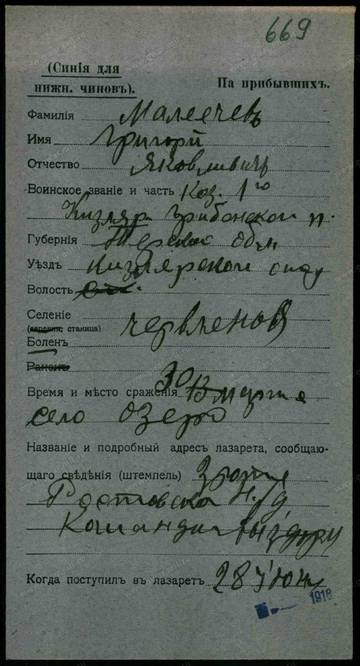 669
(Синія для
нижн. чиновъ).
На прибывшихъ.
Фамилія Малеечевъ
Имя Григорій
Отчество Яковлевичъ
Воинское званіе и часть Каз. 1го
Кизляр. Гребенской п.
Губернія Терской Обл
Уѣздъ Кизлярской
Волость
Селеніе Червленой
(деревня, станица)
Боленъ
Раненъ
Время и мѣсто сраженія 30 марта
село Озеро
Названіе и подробный адресъ лазарета, сообщаю-
щаго свѣдѣнія (штемпель) 3 рота
Ростовска Н/Д
Команди выздор
Когда поступилъ въ лазаретъ 28 Іюн
1916